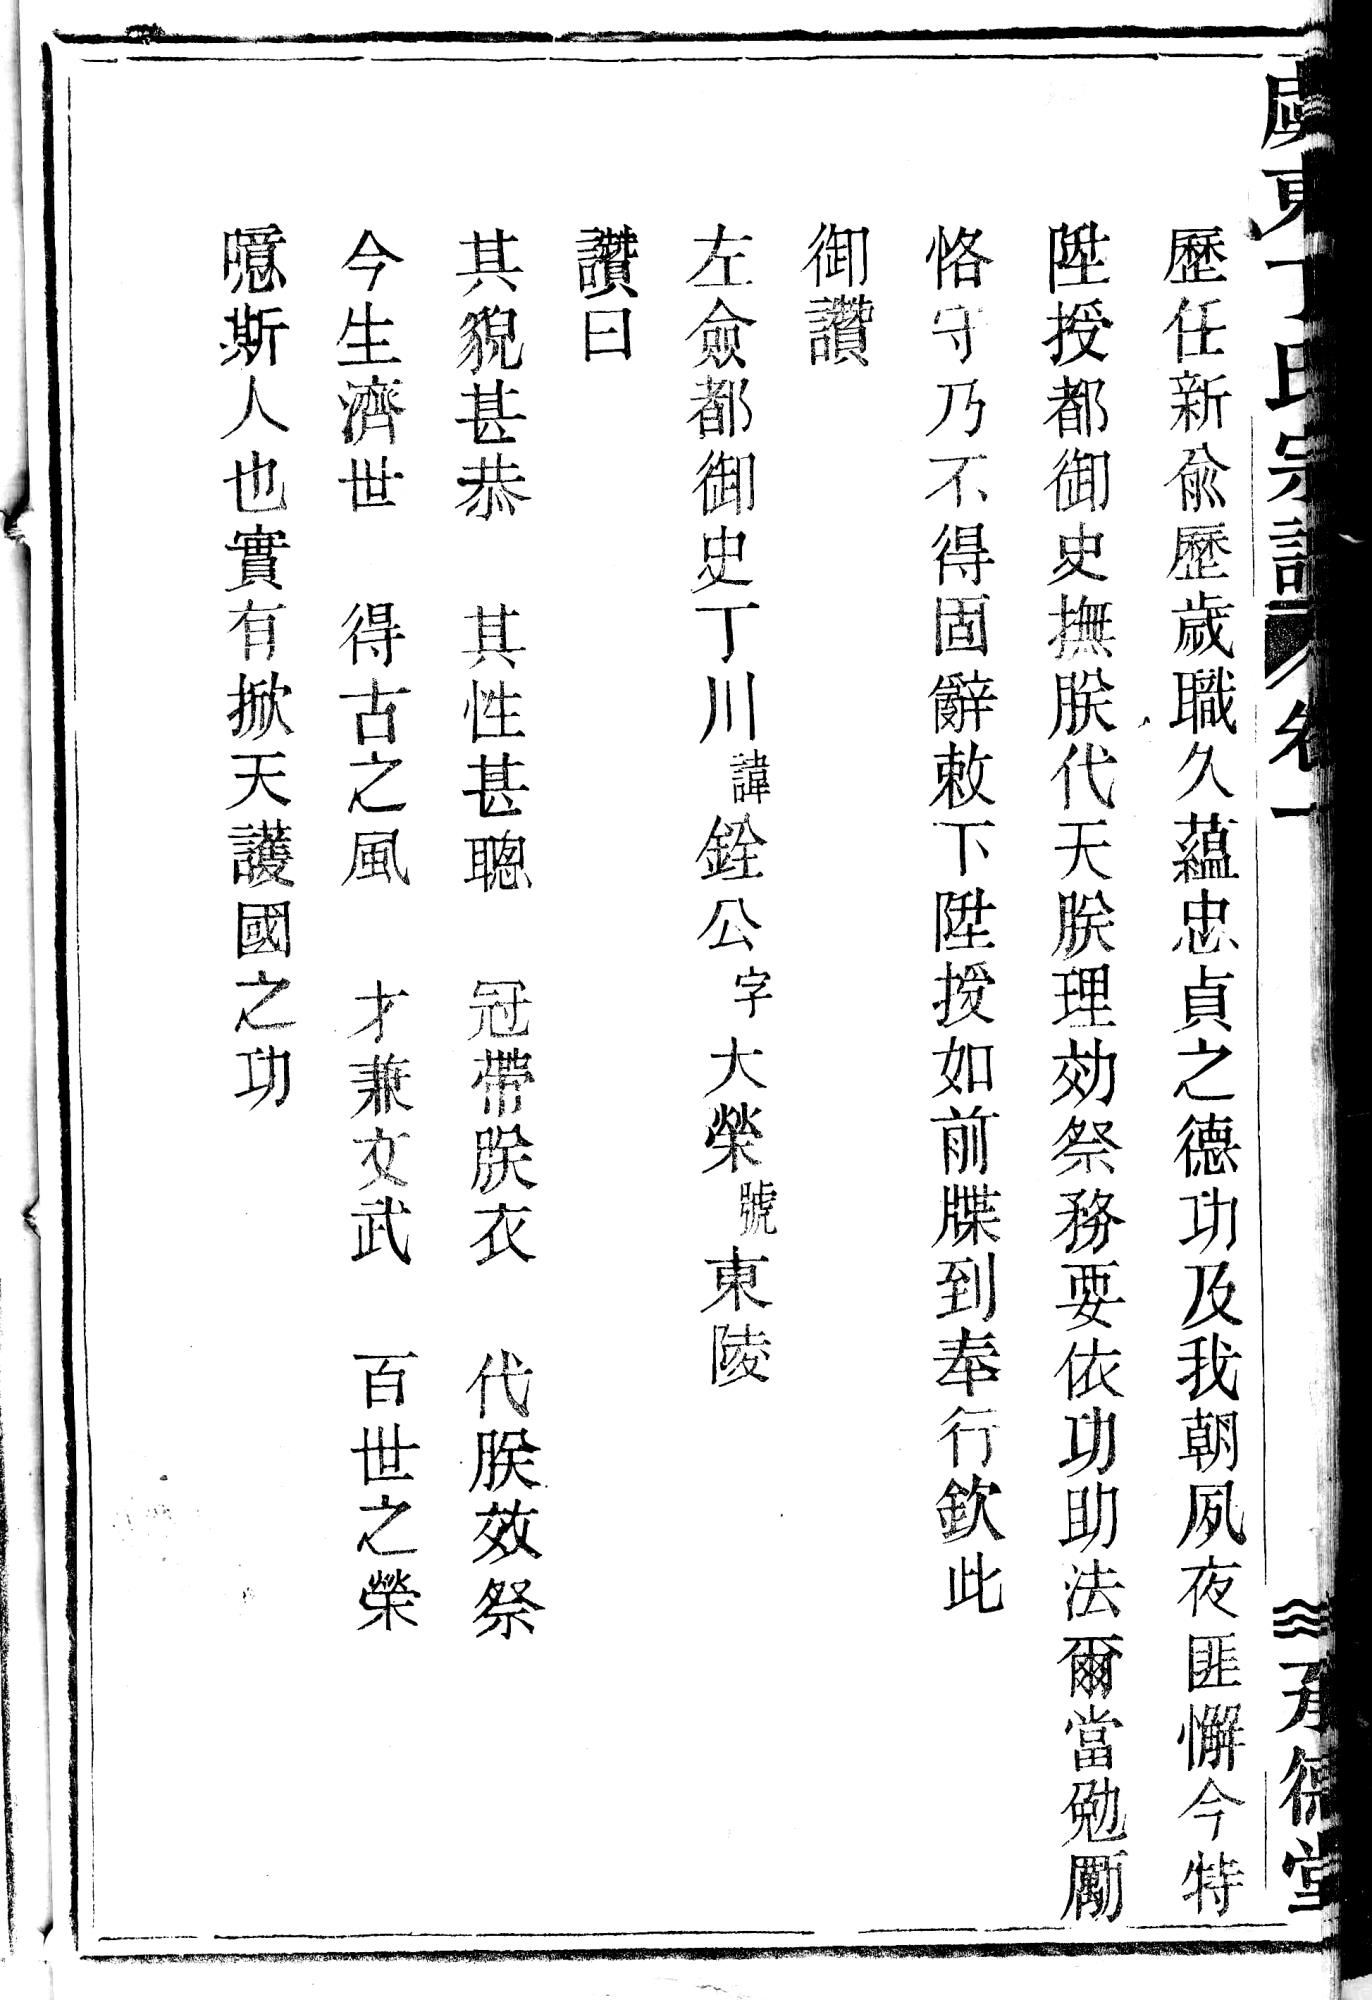 東丁氏宗譜 卷一 承德堂
歷任新俞歷歲職久蘊忠貞之德功及我朝夙夜匪懈今特
陞授都御史撫朕代天朕理効祭務要依功助法爾當勉勵
恪守乃不得固辭敕下陞授如前牒到奉行欽此
御讚
左僉都御史丁川諱銓公字大榮號東陵
讚曰
其貌甚恭 其性甚聰 冠帶朕衣 代朕效祭
今生濟世 得古之風 才兼文武 百世之榮
噫斯人也實有掀天護國之功